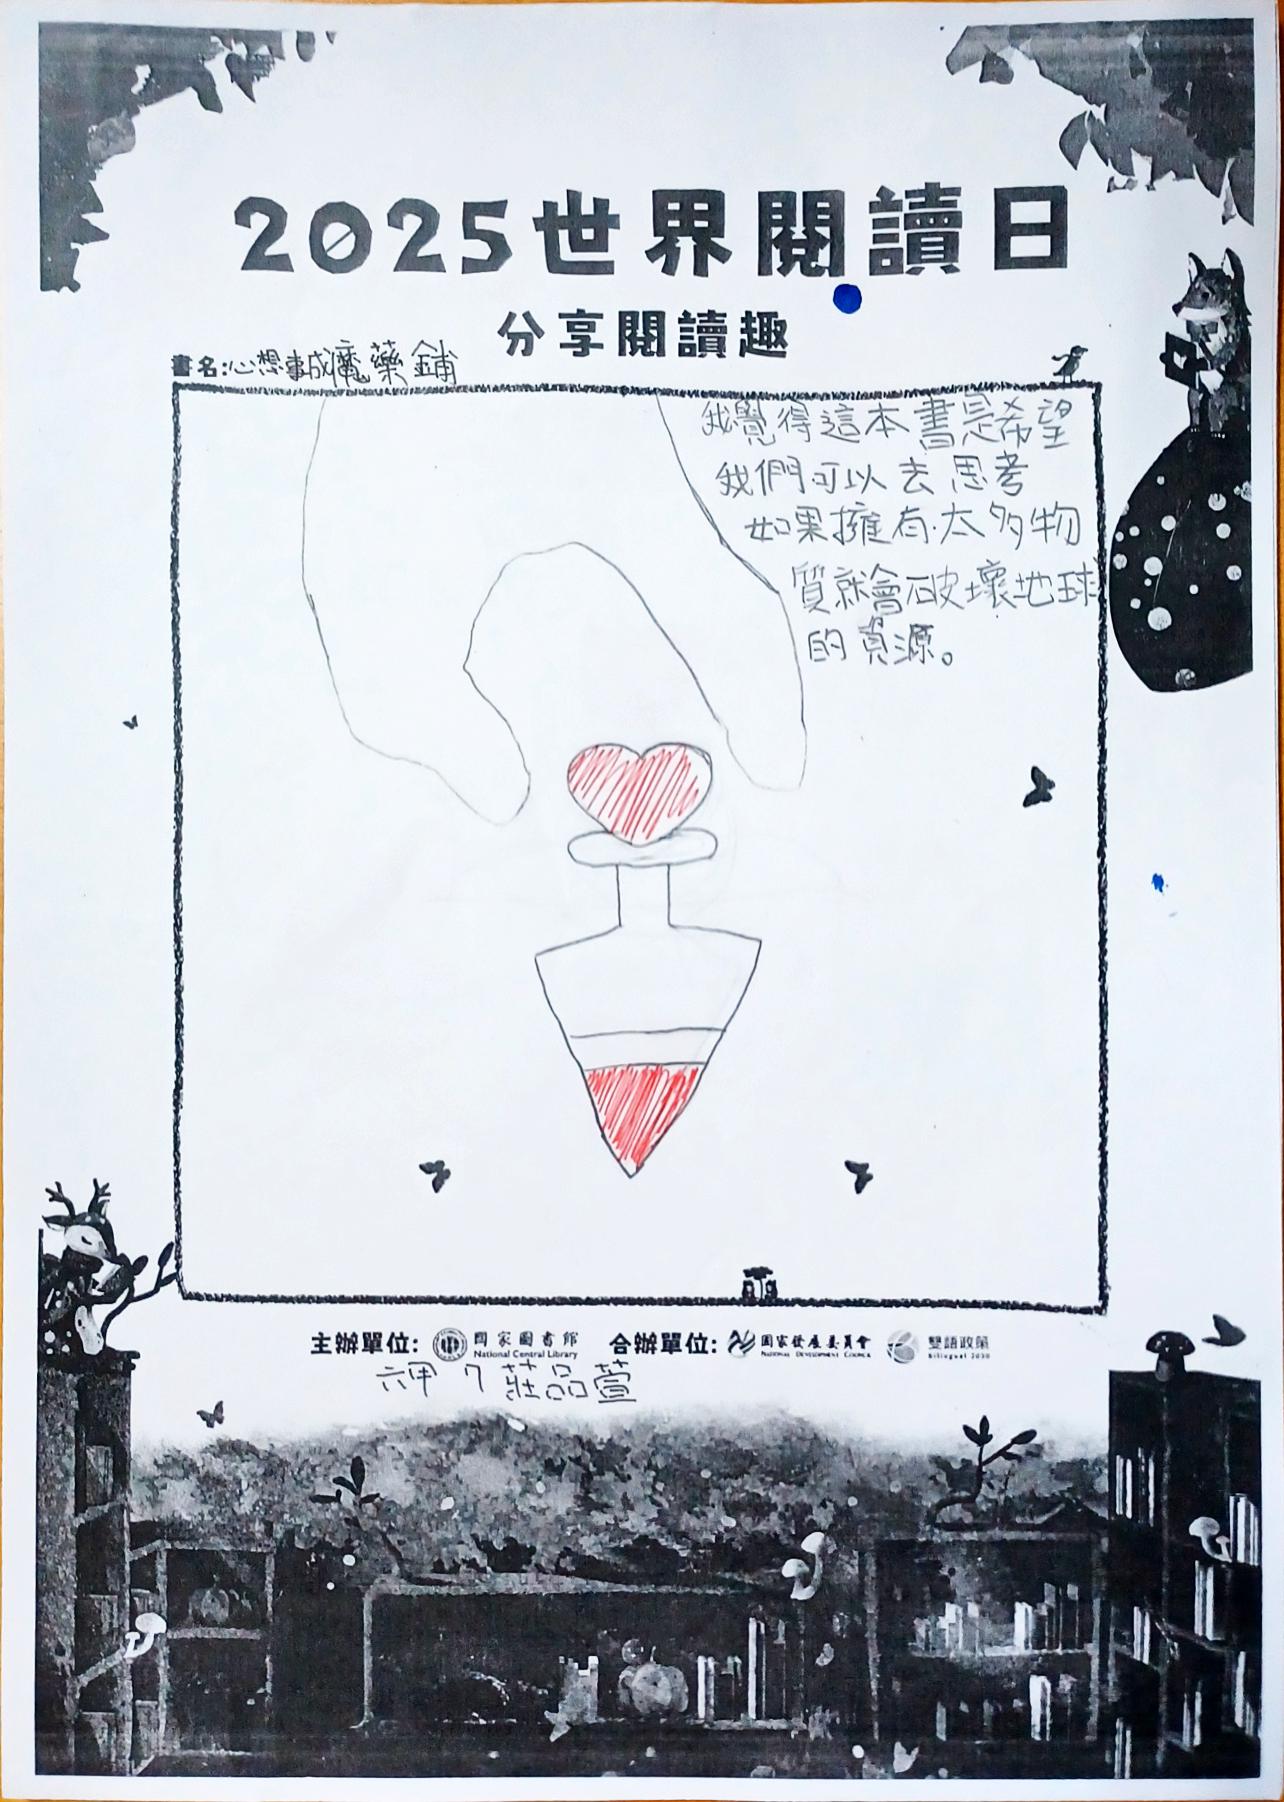 2025世界閱讀日
分享閱讀趣
書名:心想事成魔藥鋪
我覺得這本書是希望
我們可以去思考
如果擁有太多物
質就會破壞地球
的資源。
主辦單位: 國家圖書館 合辦單位: 國家發展委員會 雙語政策
National Central Library NATIONAL DEVELOPMENT COUNCIL Bilingual 2030
六甲 7 莊品萱